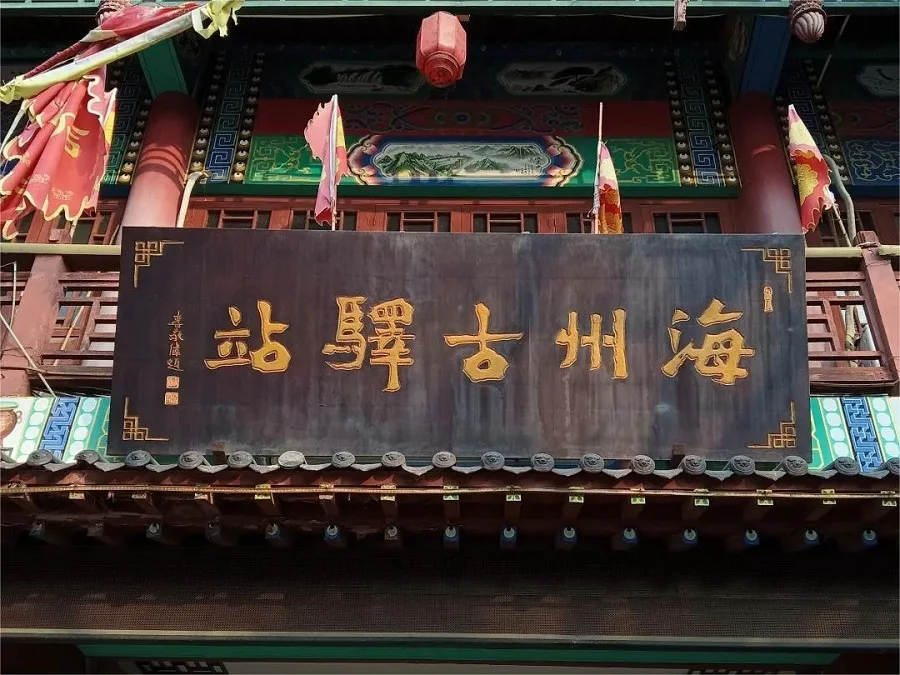 海州古驛站